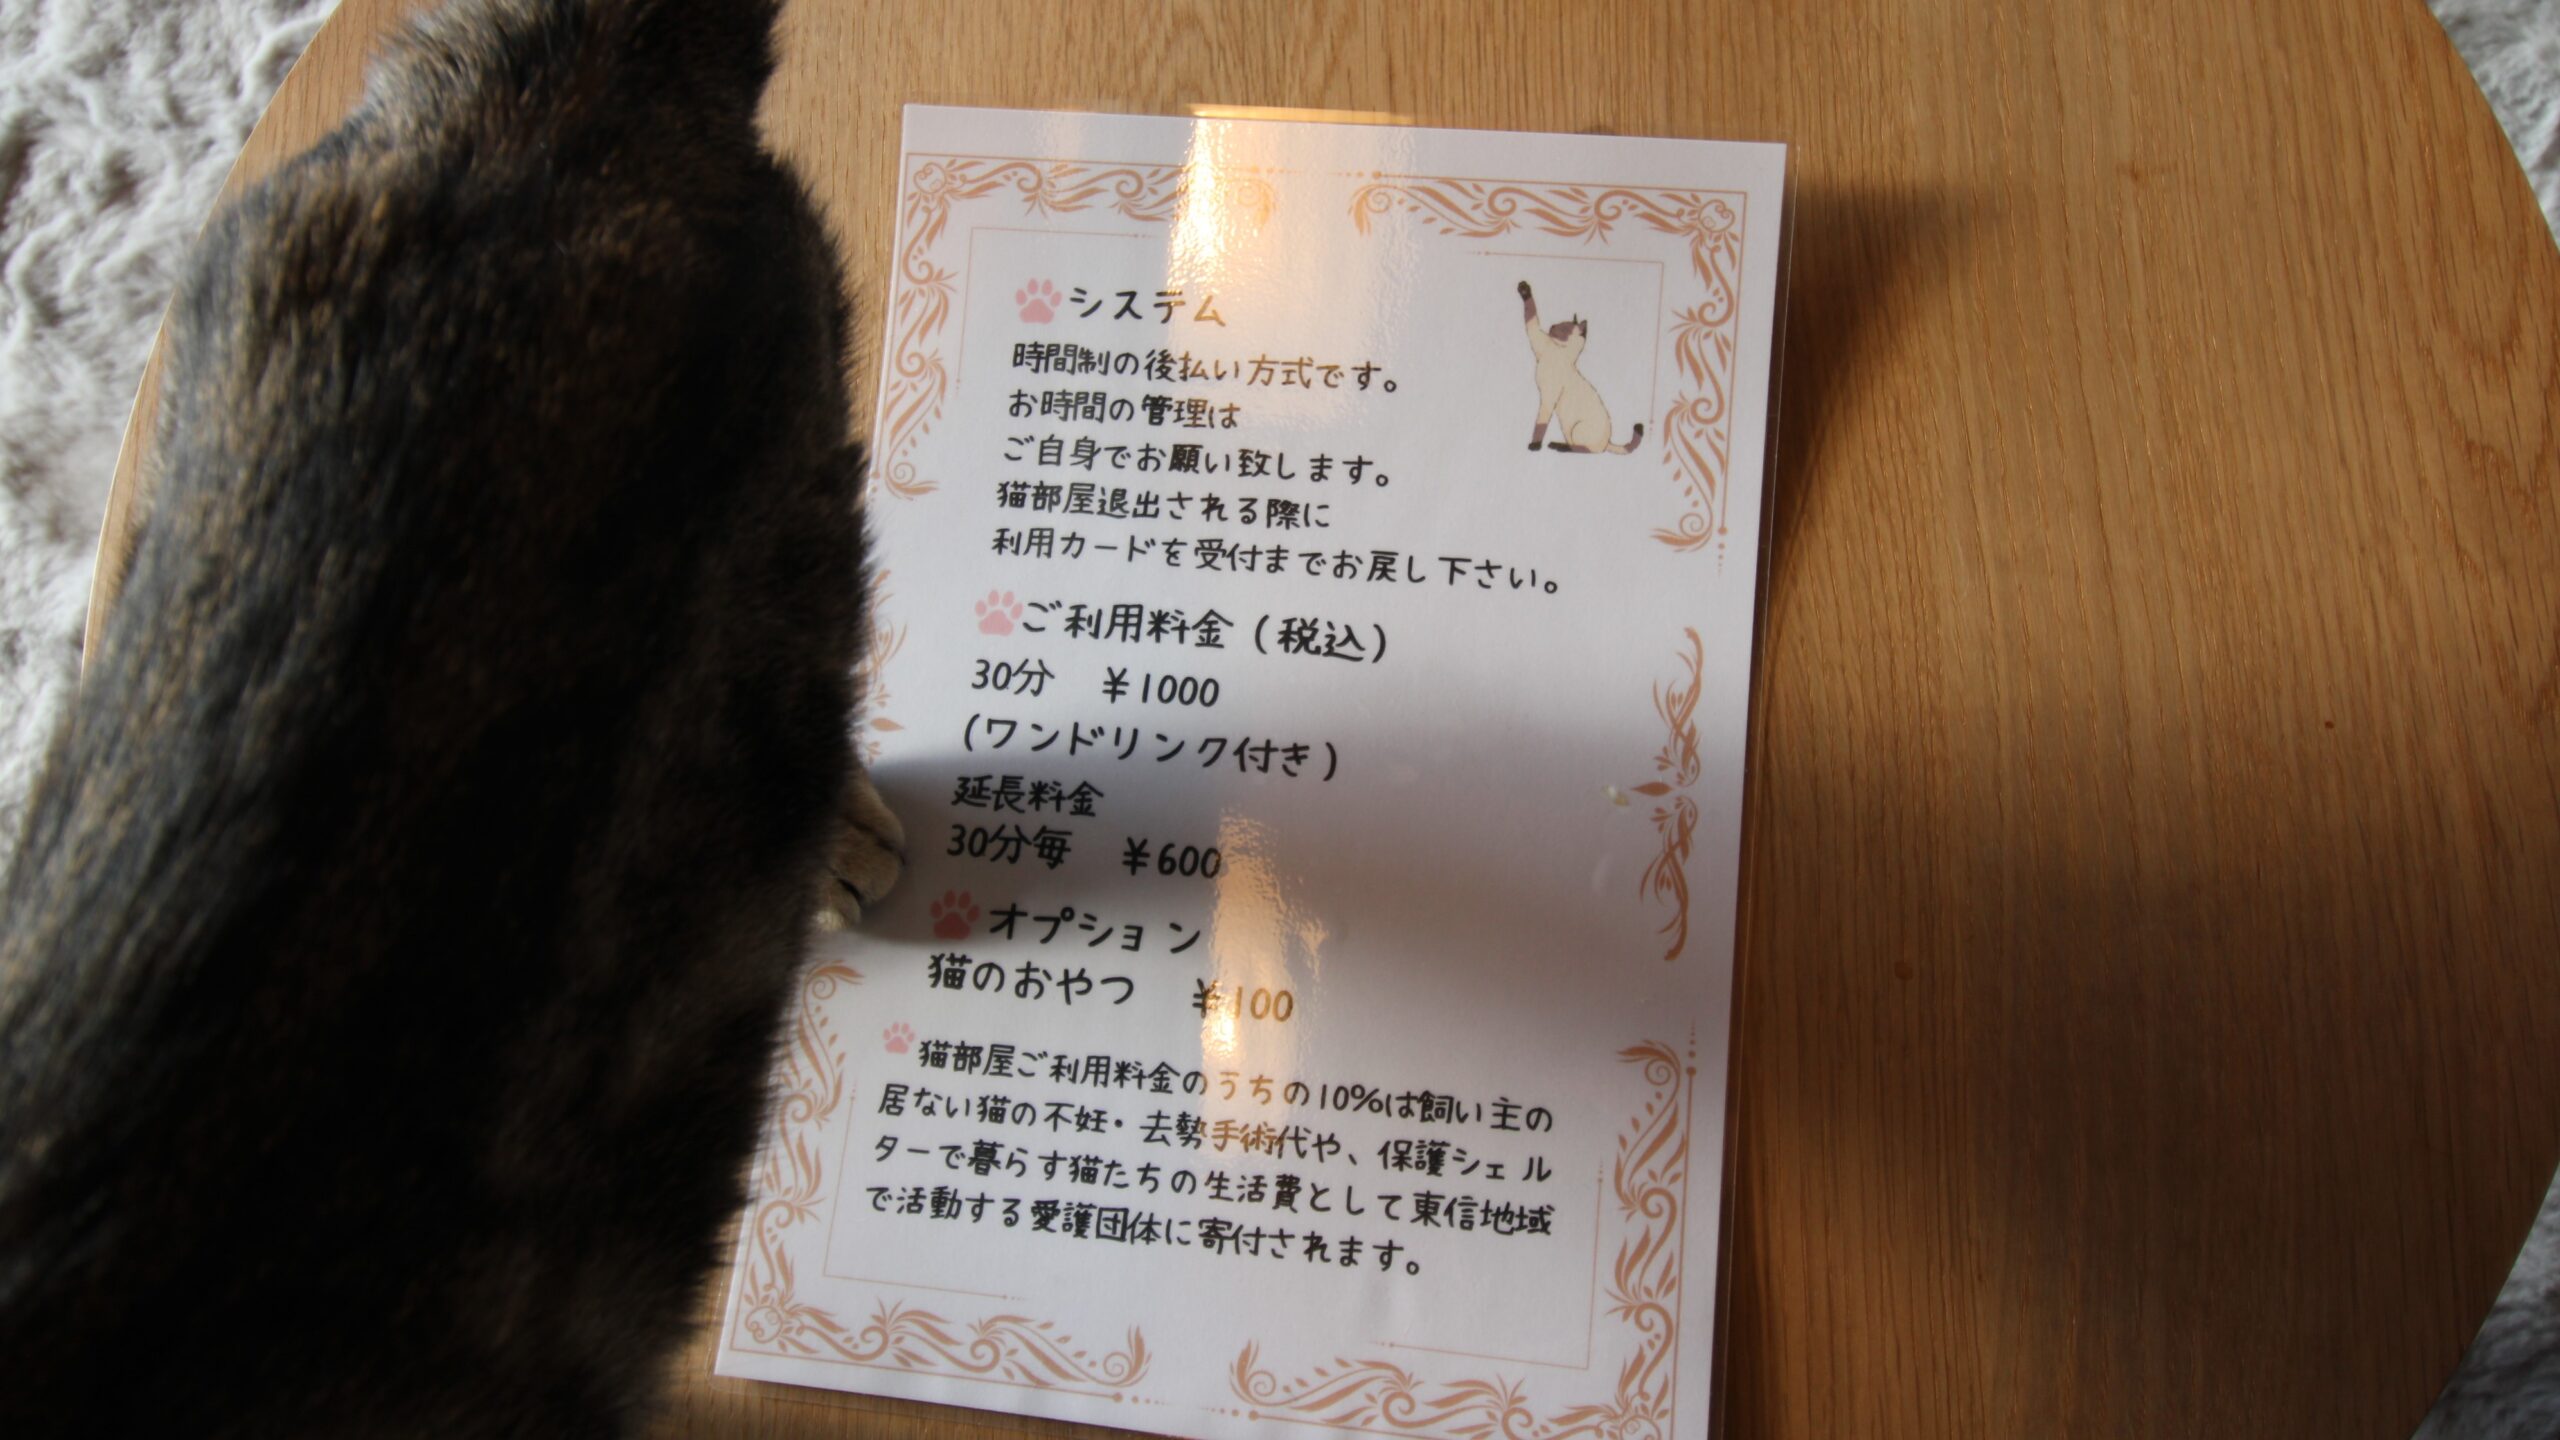 システム
時間制の後払い方式です。
お時間の管理は
ご自身でお願い致します。
猫部屋退出される際に
利用カードを受付までお戻し下さい。
ご利用料金(税込)
30分 ¥1000
(ワンドリンク付き)
延長料金
30分毎 ¥600
オプション
猫のおやつ ¥100
猫部屋ご利用料金のうちの10%は飼い主の
居ない猫の不妊・去勢手術代や、保護シェル
ターで暮らす猫たちの生活費として東信地域
で活動する愛護団体に寄付されます。